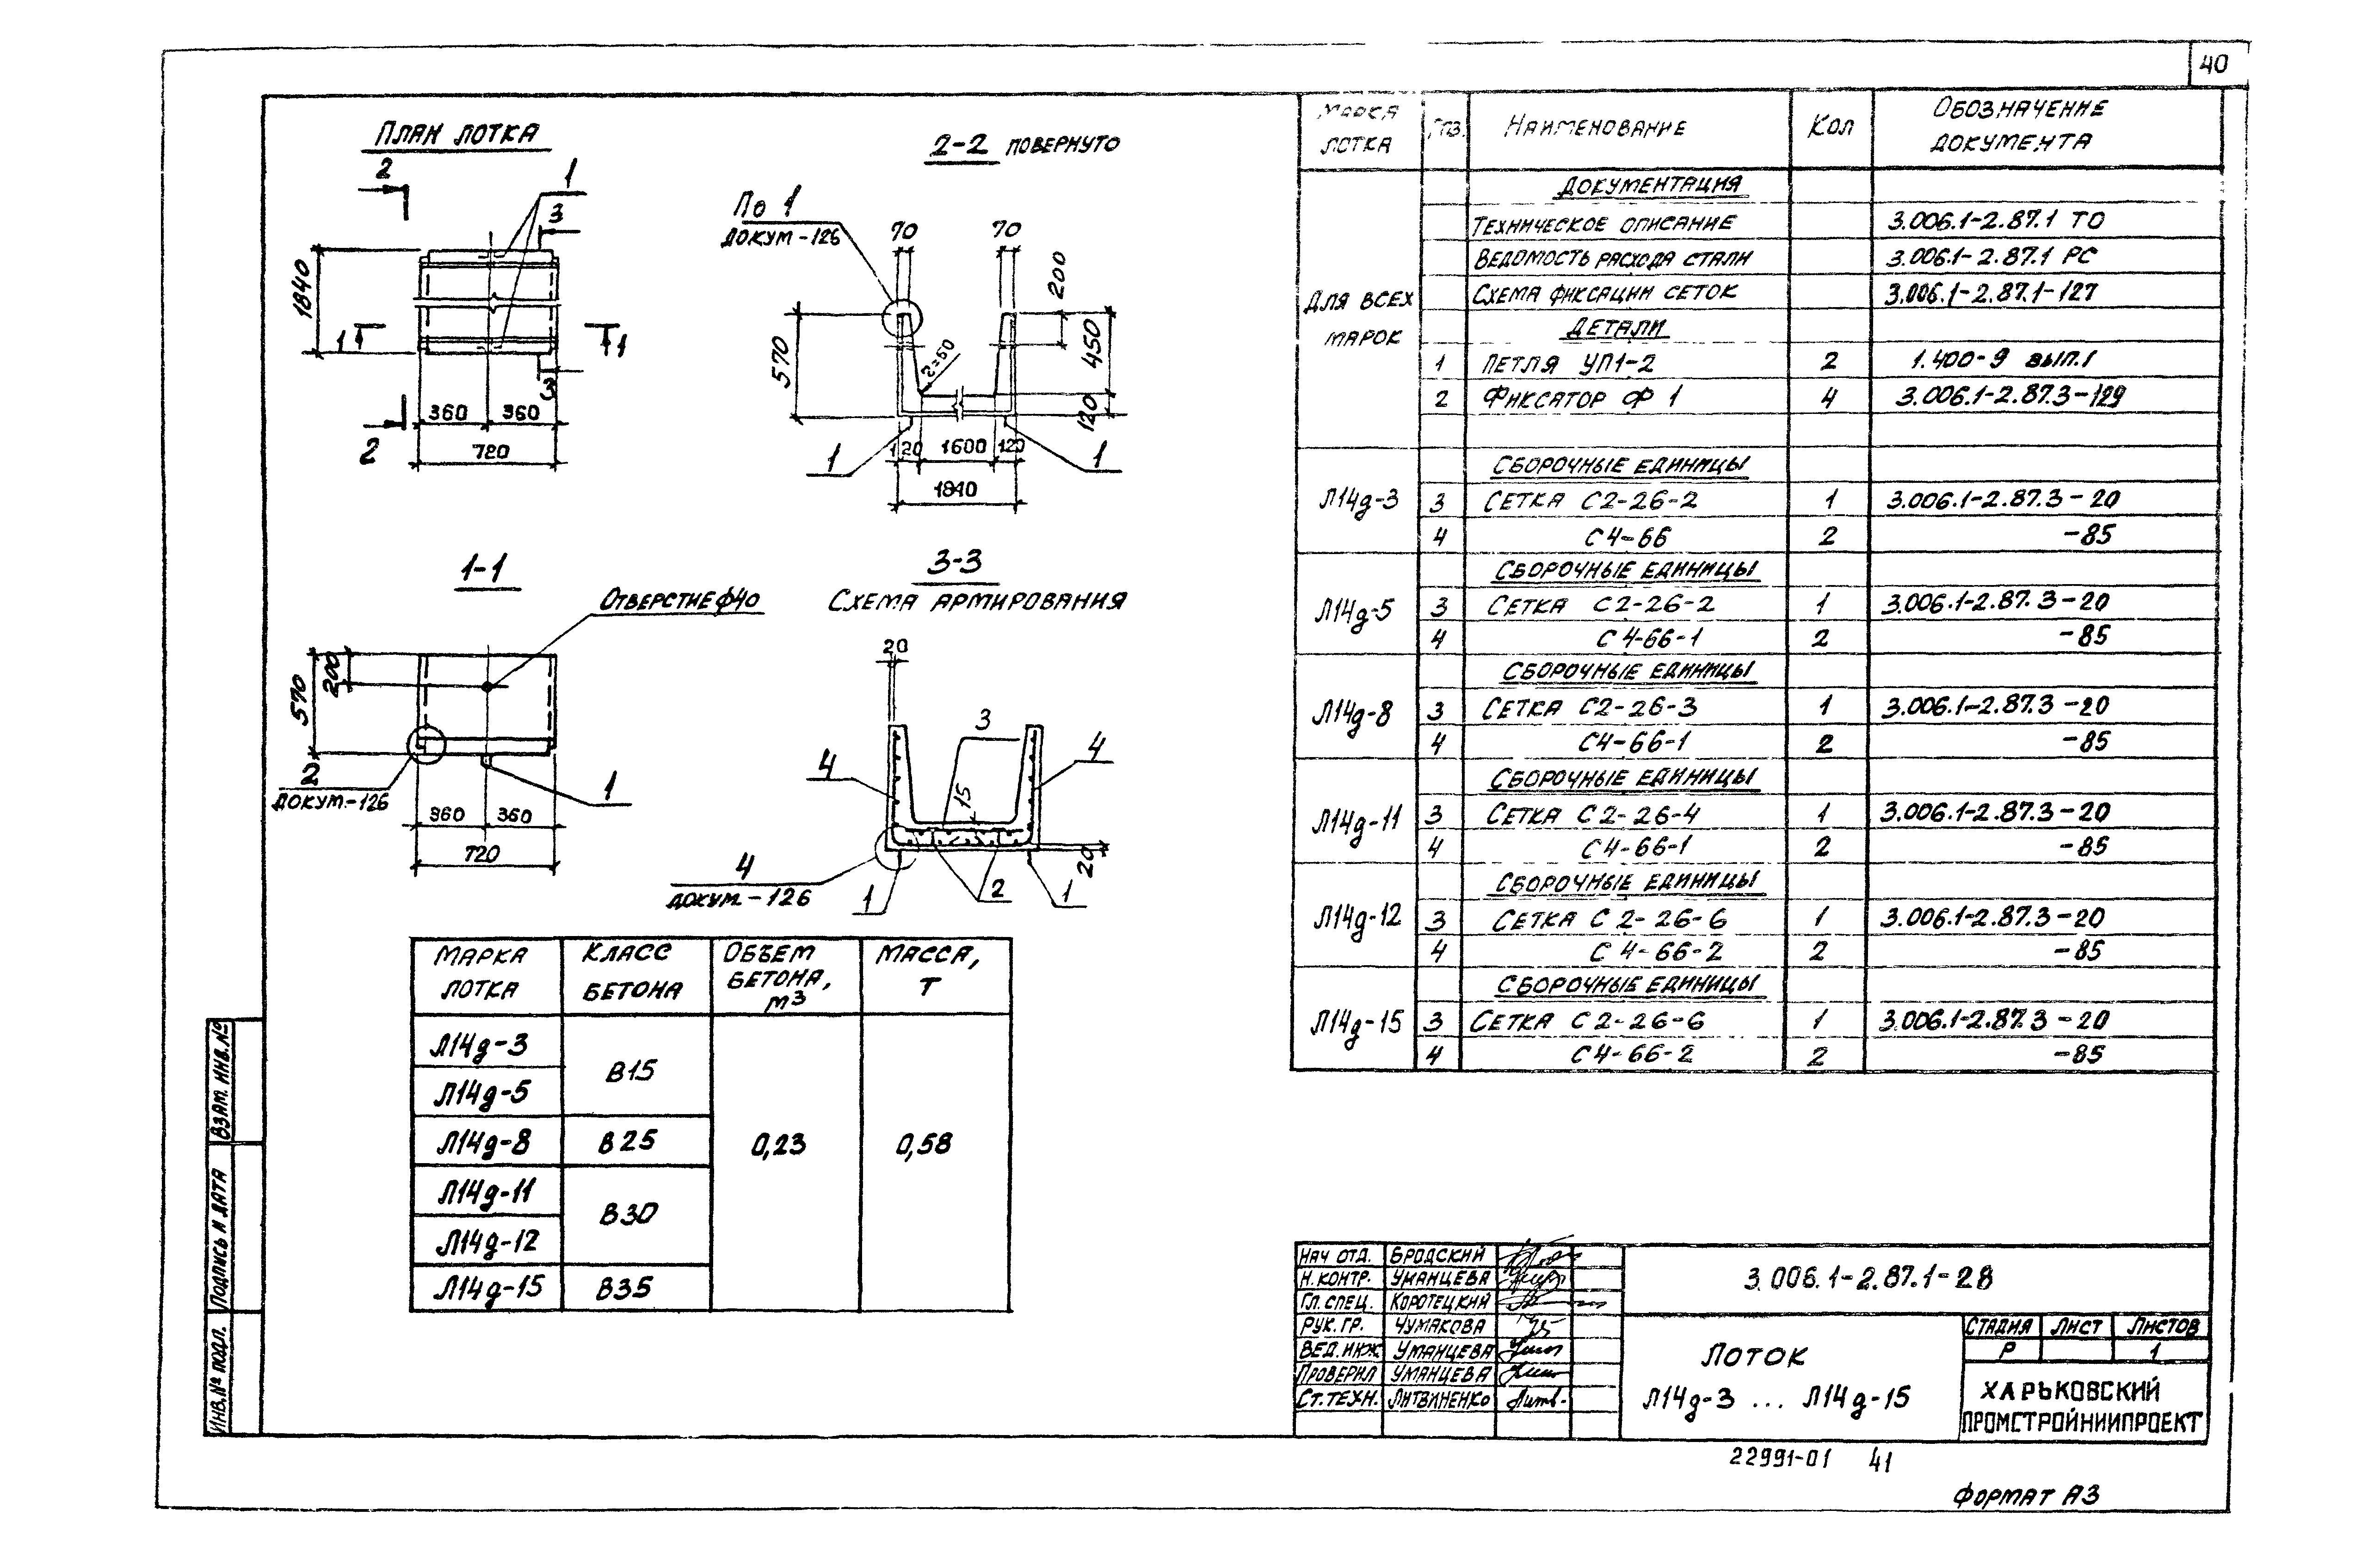 40
ПЛАН ЛОТКА
2
1
3
1840
1
1
3
360 360
2
720
2-2 ПОВЕРНУТО
По 1
ДОКУМ-126
70
70
200
570
450
120
1
120 1600 120
1
1840
1-1
ОТВЕРСТИЕ ф40
570
200
2
ДОКУМ.-126
1
360 360
720
3-3
СХЕМА АРМИРОВАНИЯ
20
3
4
4
15
4
ДОКУМ.-126
1
2
1
20
МАРКА ЛОТКА КЛАСС БЕТОНА ОБЪЕМ БЕТОНА, м3 МАССА, Т
Л14д-3
В15
Л14д-5
Л14д-8 В25 0,23 0,58
Л14д-11
В30
Л14д-12
Л14д-15 В35
МАРКА ЛОТКА ПОЗ. НАИМЕНОВАНИЕ КОЛ ОБОЗНАЧЕНИЕ ДОКУМЕНТА
ДЛЯ ВСЕХ МАРОК
ДОКУМЕНТАЦИЯ
ТЕХНИЧЕСКОЕ ОПИСАНИЕ 3.006.1-2.87.1 ТО
ВЕДОМОСТЬ РАСХОДА СТАЛИ 3.006.1-2.87.1 РС
СХЕМА ФИКСАЦИИ СЕТОК 3.006.1-2.87.1-127
ДЕТАЛИ
1 ПЕТЛЯ УП1-2 2 1.400-9 ВЫП.1
2 ФИКСАТОР Ф 1 4 3.006.1-2.87.3-129
СБОРОЧНЫЕ ЕДИНИЦЫ
Л14д-3 3 СЕТКА С2-26-2 1 3.006.1-2.87.3-20
4 С4-66 2 -85
СБОРОЧНЫЕ ЕДИНИЦЫ
Л14д-5 3 СЕТКА С2-26-2 1 3.006.1-2.87.3-20
4 С4-66-1 2 -85
СБОРОЧНЫЕ ЕДИНИЦЫ
Л14д-8 3 СЕТКА С2-26-3 1 3.006.1-2.87.3-20
4 С4-66-1 2 -85
СБОРОЧНЫЕ ЕДИНИЦЫ
Л14д-11 3 СЕТКА С2-26-4 1 3.006.1-2.87.3-20
4 С4-66-1 2 -85
СБОРОЧНЫЕ ЕДИНИЦЫ
Л14д-12 3 СЕТКА С2-26-6 1 3.006.1-2.87.3-20
4 С4-66-2 2 -85
СБОРОЧНЫЕ ЕДИНИЦЫ
Л14д-15 3 СЕТКА С2-26-6 1 3.006.1-2.87.3-20
4 С4-66-2 2 -85
НАЧ ОТД. БРОДСКИЙ
Н.КОНТР. УМАНЦЕВА
ГЛ.СПЕЦ. КОРОТЕЦКИЙ
РУК.ГР. ЧУМАКОВА
ВЕД.ИНЖ УМАНЦЕВА
ПРОВЕРИЛ УМАНЦЕВА
СТ.ТЕХН. ЛИТВИНЕНКО
3.006.1-2.87.1-28
ЛОТОК
Л14д-3 ... Л14д-15
СТАДИЯ ЛИСТ ЛИСТОВ
Р 1
ХАРЬКОВСКИЙ
ПРОМСТРОЙНИИПРОЕКТ
22991-01 41
ФОРМАТ А3
ВЗАМ. ИНВ.№
ПОДПИСЬ И ДАТА
ИНВ.№ ПОДЛ.